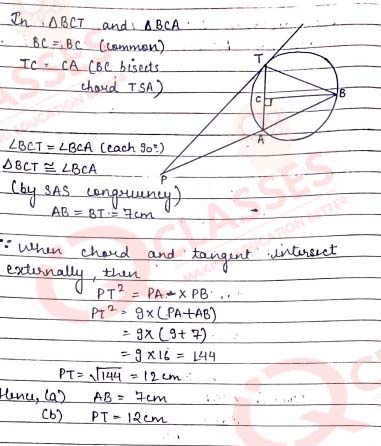 In △BCT and △BCA
BC = BC (common)
TC = CA (BC bisects
chord TSA)
T
C
B
A
P
∠BCT = ∠BCA (each 90°)
△BCT ≅ ∠BCA
(by SAS congruency)
AB = BT = 7cm
∵ When chord and tangent intersect
externally, then
PT² = PA × PB
PT² = 9×(PA+AB)
= 9×(9+7)
= 9×16 = 144
PT = √144 = 12cm
Hence, (a) AB = 7cm
(b) PT = 12cm
CLASSES
MAKING EDUCATION BETTER
CLASSES